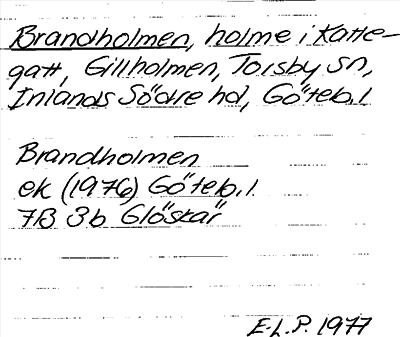 Brandholmen, holme i Katte-
gatt, Gillholmen, Torsby sn,
Inlands Södre hd, Göteb. l
Brandholmen
ek (1976) Göteb. l.
7B 3b Glöskär
E.L.P. 1977